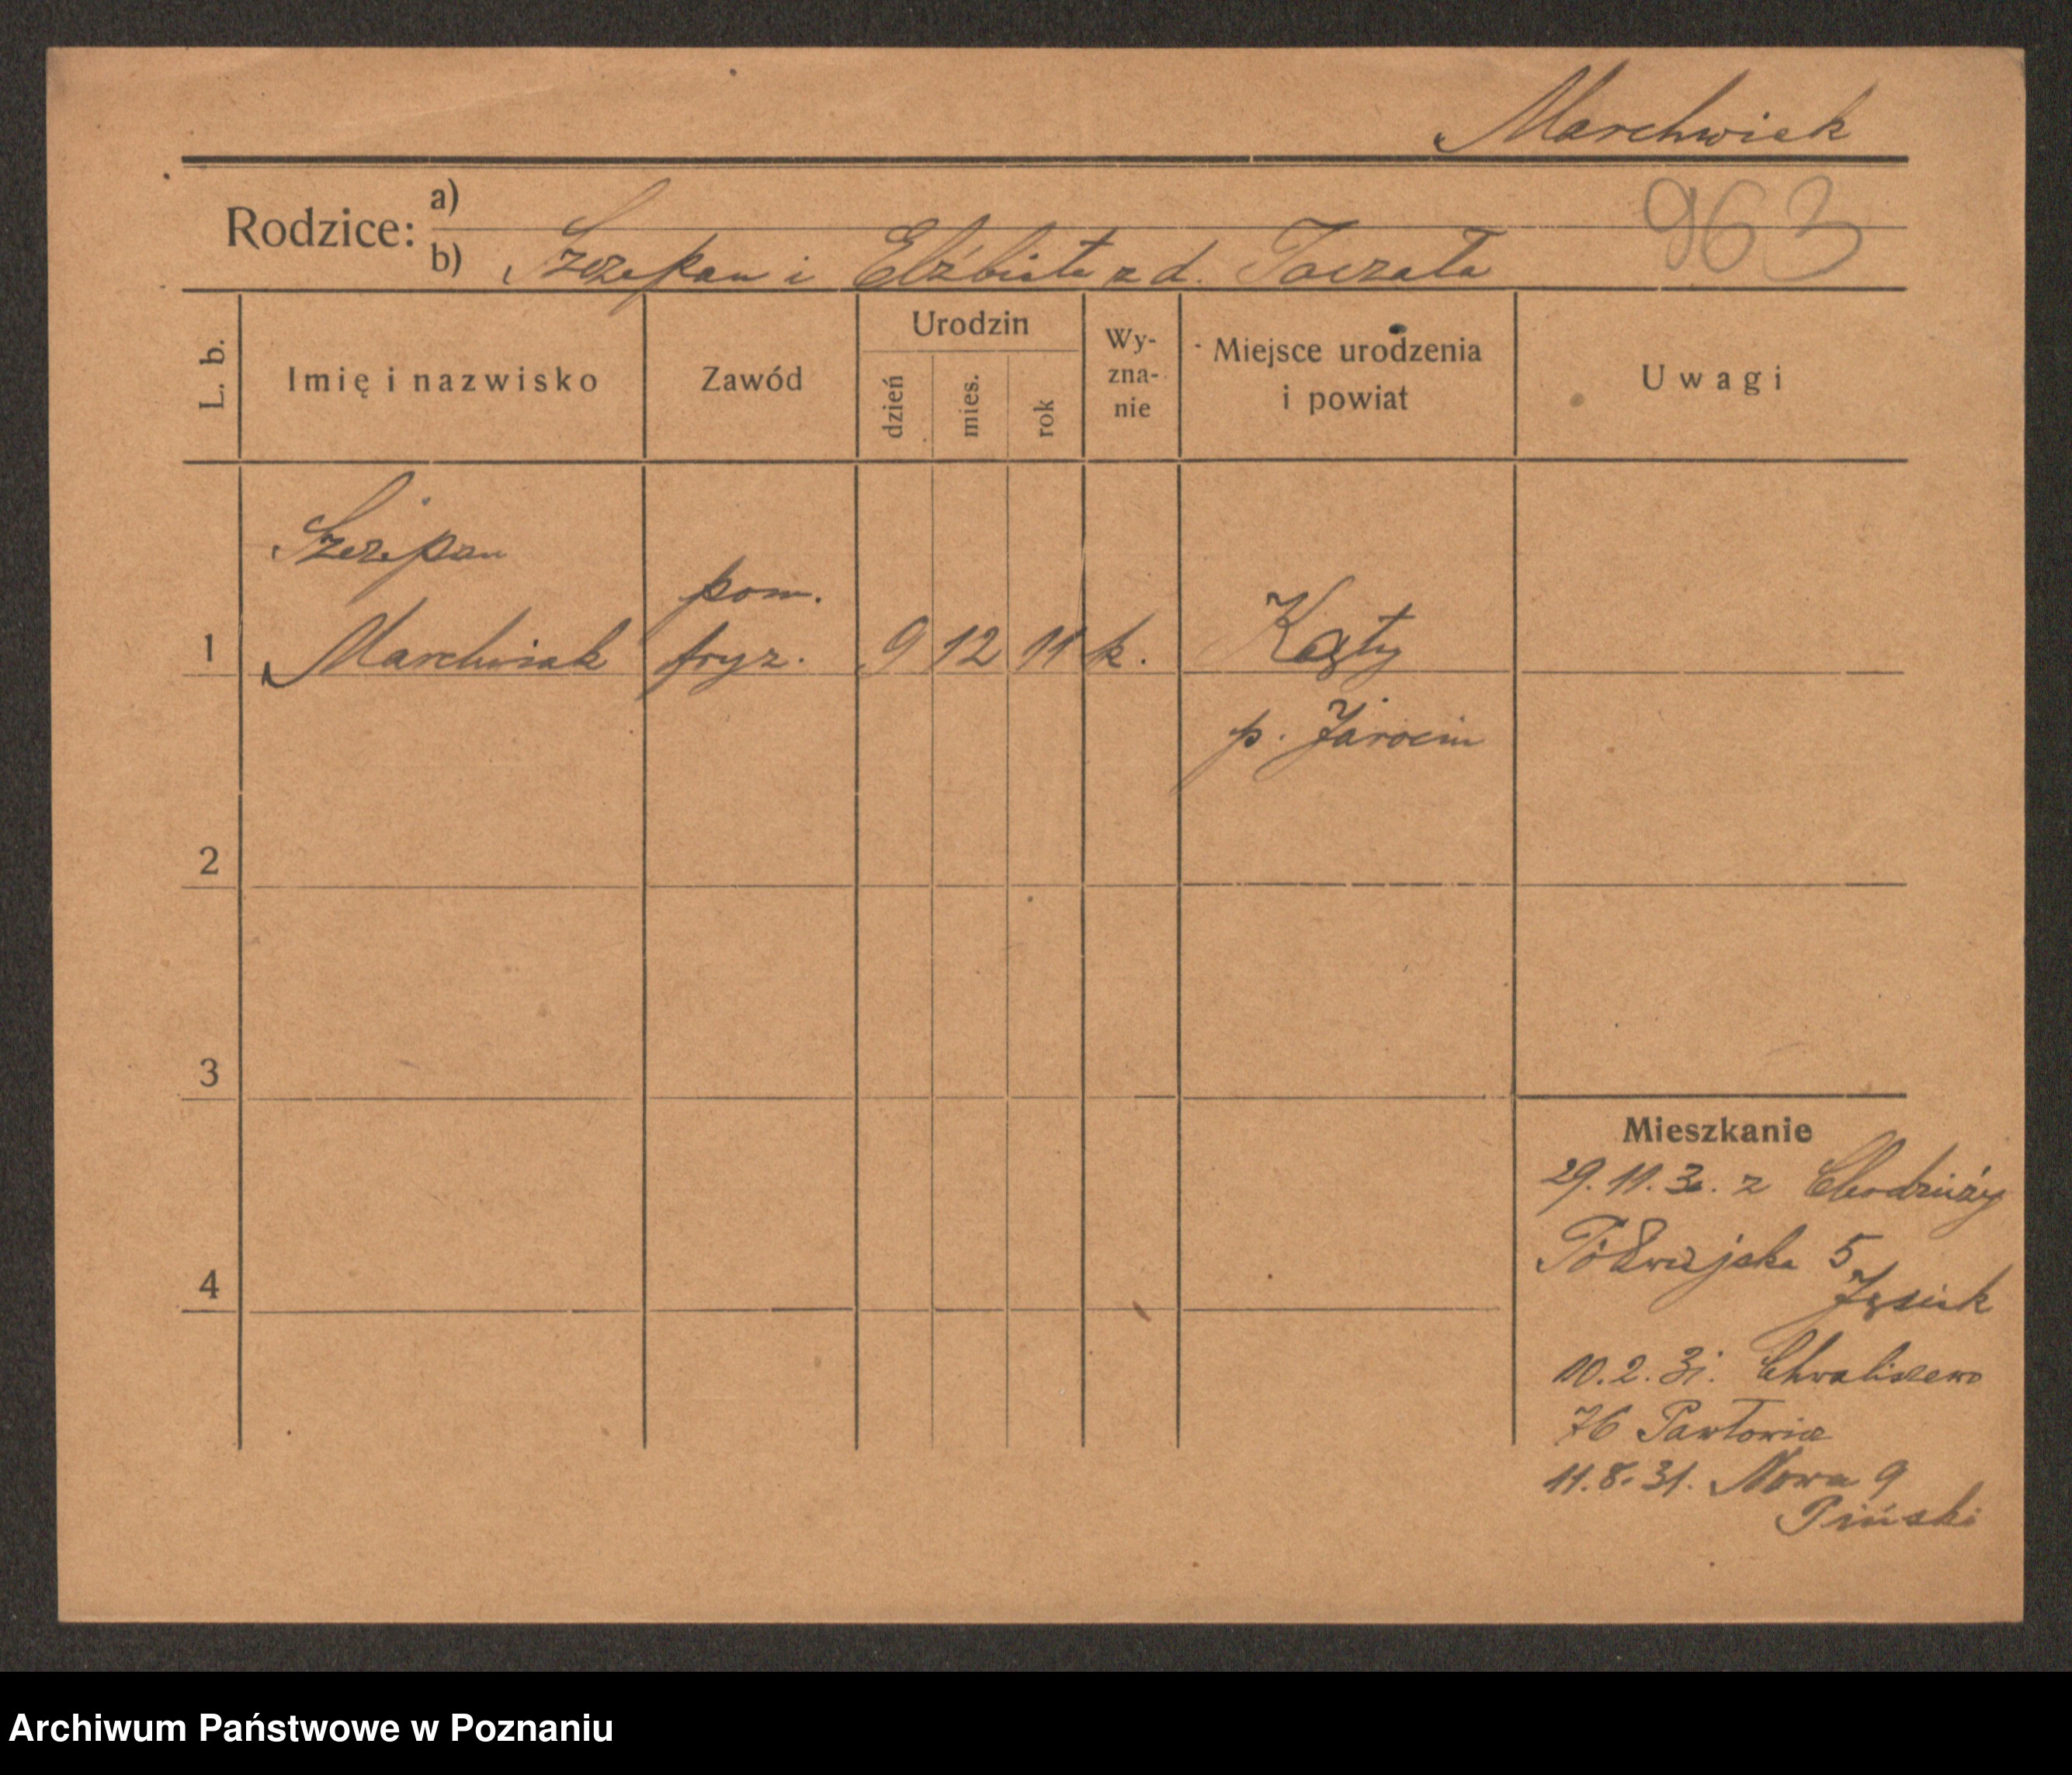 Marchwiak
963
Rodzice: a)
b) Szczepan i Elżbieta z d. Toczała
L. b.
Imię i nazwisko
Zawód
Urodzin
dzień
mies.
rok
Wy-
zna-
nie
Miejsce urodzenia
i powiat
Uwagi
Szczepan
pom.
1 Marchwiak fryz. 9 12 11 k. Kąty
p. Jarocin
2
3
4
Mieszkanie
29.11.30. z Chodzieży
Półwiejska 5
10.2.31. Chwaliszewo
76 Pawłowicz
11.8.31. Nowa 9
Piński
Archiwum Państwowe w Poznaniu